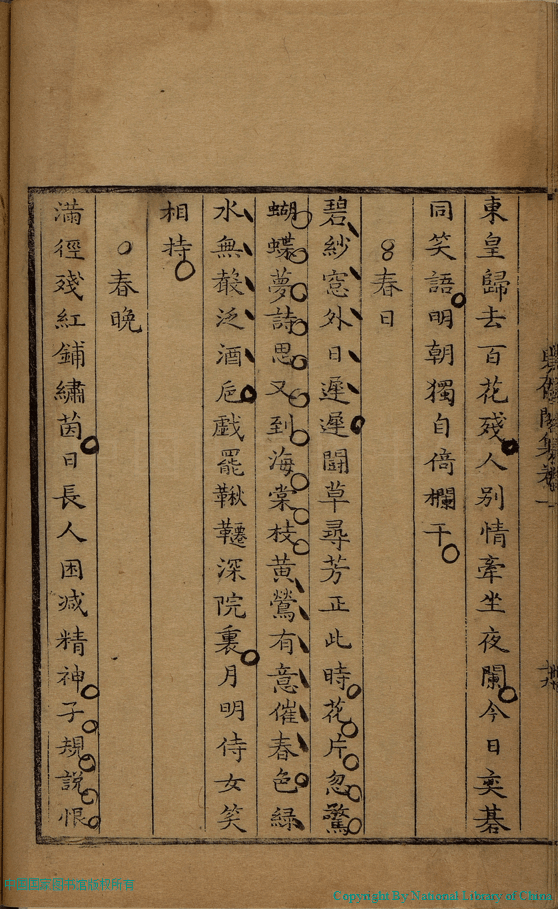 東皇歸去百花殘人別情牽坐夜闌今日奕碁
同笑語明朝獨自倚欄干
春日
碧紗窓外日遲遲鬪草尋芳正此時花片忽驚
蝴蝶夢詩思又到海棠枝黃鶯有意催春色綠
水無聲泛酒巵戲罷鞦韆深院裏月明侍女笑
相持
春晚
滿徑殘紅鋪繡茵日長人困减精神子規說恨
Copyright By National Library of China